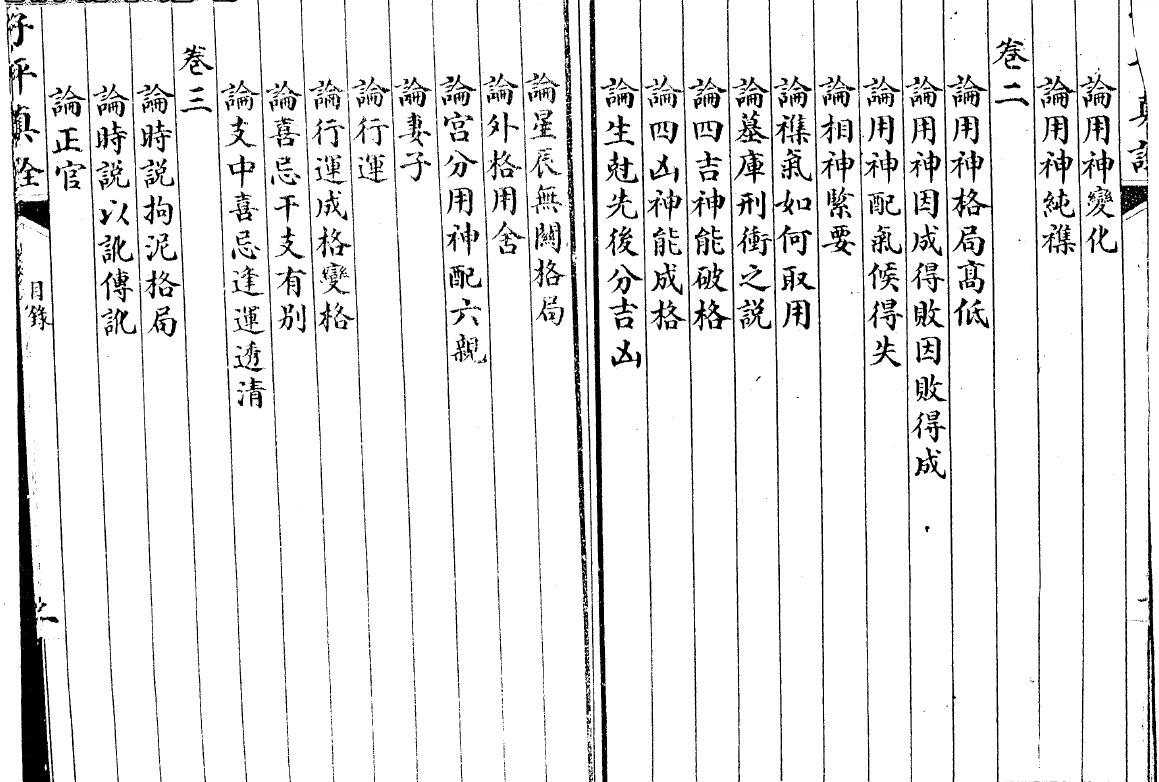 論用神變化
論用神純襍
卷二
論用神格局髙低
論用神因成得敗因敗得成
論用神配氣候得失
論相神緊要
論襍氣如何取用
論墓庫刑衝之説
論四吉神能破格
論四凶神能成格
論生尅先後分吉凶
論星辰無關格局
論外格用舍
論宮分用神配六親
論妻子
論行運
論行運成格變格
論喜忌干支有别
論支中喜忌逢運透清
卷三
論時説拘泥格局
論時説以訛傳訛
論正官
子平真詮
目錄